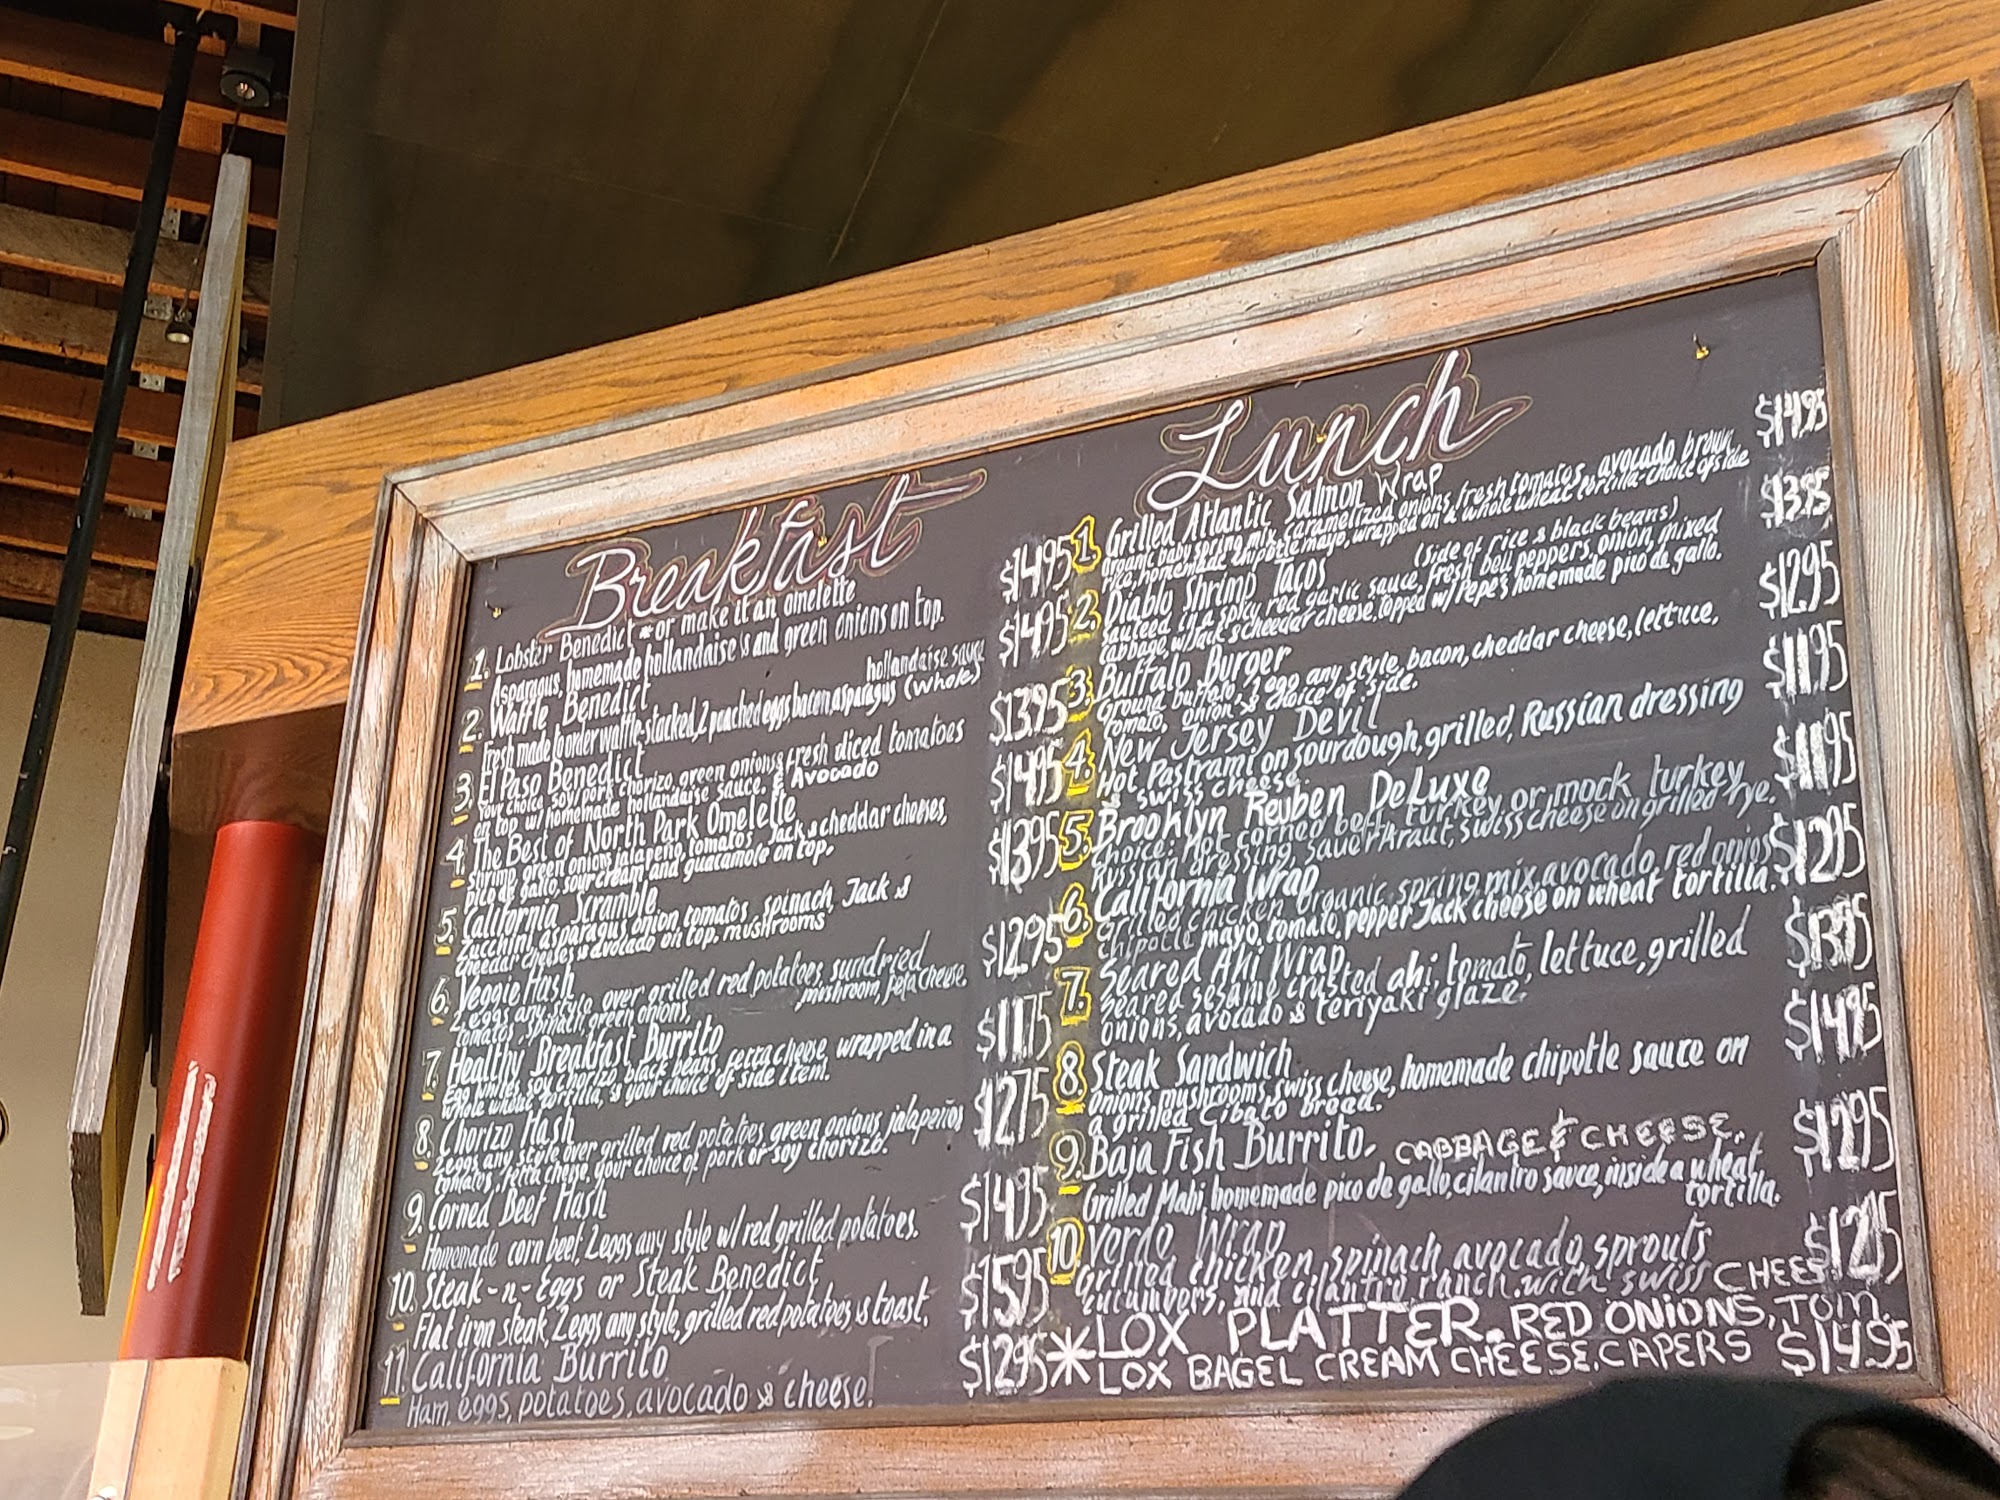 Breakfast
1. Lobster Benedict * or make it an omelette $14.95
Asparagus, homemade hollandaise & and green onions on top.
2. Waffle Benedict $14.95
hollandaise sauce
Fresh made to order waffle-stacked, 2 poached eggs, bacon, asparagus (whole)
3. El Paso Benedict $13.95
Your choice soy/pork chorizo, green onions & fresh diced tomatoes
on top w/ homemade hollandaise sauce. & Avocado
4. The Best of North Park Omelette $14.95
Shrimp, green onions, jalapeño, tomatos, Jack & cheddar cheeses,
pico de gallo, sour cream and guacamole on top.
5. California Scramble $13.95
Zucchini, asparagus onion, tomatos, spinach, Jack &
cheddar cheeses & avocado on top. mushrooms
6. Veggie Hash $12.95
2 eggs any style over grilled red potatoes, sundried
tomatos, spinach, green onions, mushroom, feta cheese.
7. Healthy Breakfast Burrito $11.75
Egg whites, soy chorizo, black beans, fetta cheese, wrapped in a
whole wheat tortilla, & your choice of side item.
8. Chorizo Hash $12.75
2 eggs any style over grilled red potatoes, green onions, jalapeños,
tomatos, fetta cheese, your choice of pork or soy chorizo.
9. Corned Beef Hash $14.95
Homemade corn beef, 2 eggs any style w/ red grilled potatoes.
10. Steak-n-Eggs or Steak Benedict $15.95
Flat iron steak, 2 eggs any style, grilled red potatoes & toast.
11. California Burrito $12.95
Ham, eggs, potatoes, avocado & cheese!
Lunch
1. Grilled Atlantic Salmon Wrap $14.95
Organic baby spring mix, caramelized onions, fresh tomatos, avocado, brown
rice, homemade chipotle mayo, wrapped on a whole wheat tortilla-choice of side
2. Diablo Shrimp Tacos (side of rice & black beans) $13.95
sauteed in a spicy red garlic sauce, fresh bell peppers, onion, mixed
cabbage, w/ Jack & cheedar cheese, topped w/ Pepe's homemade pico de gallo.
3. Buffalo Burger $12.95
Ground buffalo, 1 egg any style, bacon, cheddar cheese, lettuce,
tomato, onion & choice of side.
4. New Jersey Devil $11.95
Hot Pastrami on sourdough, grilled, Russian dressing
& swiss cheese.
5. Brooklyn Reuben DeLuxe $11.95
Choice: Hot corned beef, turkey or mock turkey
Russian dressing, sauerkraut, swiss cheese on grilled rye.
6. California Wrap $12.95
Grilled chicken organic spring mix, avocado, red onions
chipotle mayo, tomato, pepper Jack cheese on wheat tortilla.
7. Seared Ahi Wrap $13.95
Seared sesame crusted ahi, tomato, lettuce, grilled
onions, avocado & teriyaki glaze.
8. Steak Sandwich $14.95
Onions, mushrooms, swiss cheese, homemade chipotle sauce on
a grilled Cibato bread.
9. Baja Fish Burrito. CABBAGE & CHEESE. $12.95
Grilled Mahi, homemade pico de gallo, cilantro sauce, inside a wheat
tortilla.
10. Verde Wrap $12.95
Grilled chicken, spinach, avocado, sprouts
cucumbers, and cilantro ranch. with swiss CHEESE
* LOX PLATTER. RED ONIONS, TOM.
LOX BAGEL CREAM CHEESE. CAPERS $14.95